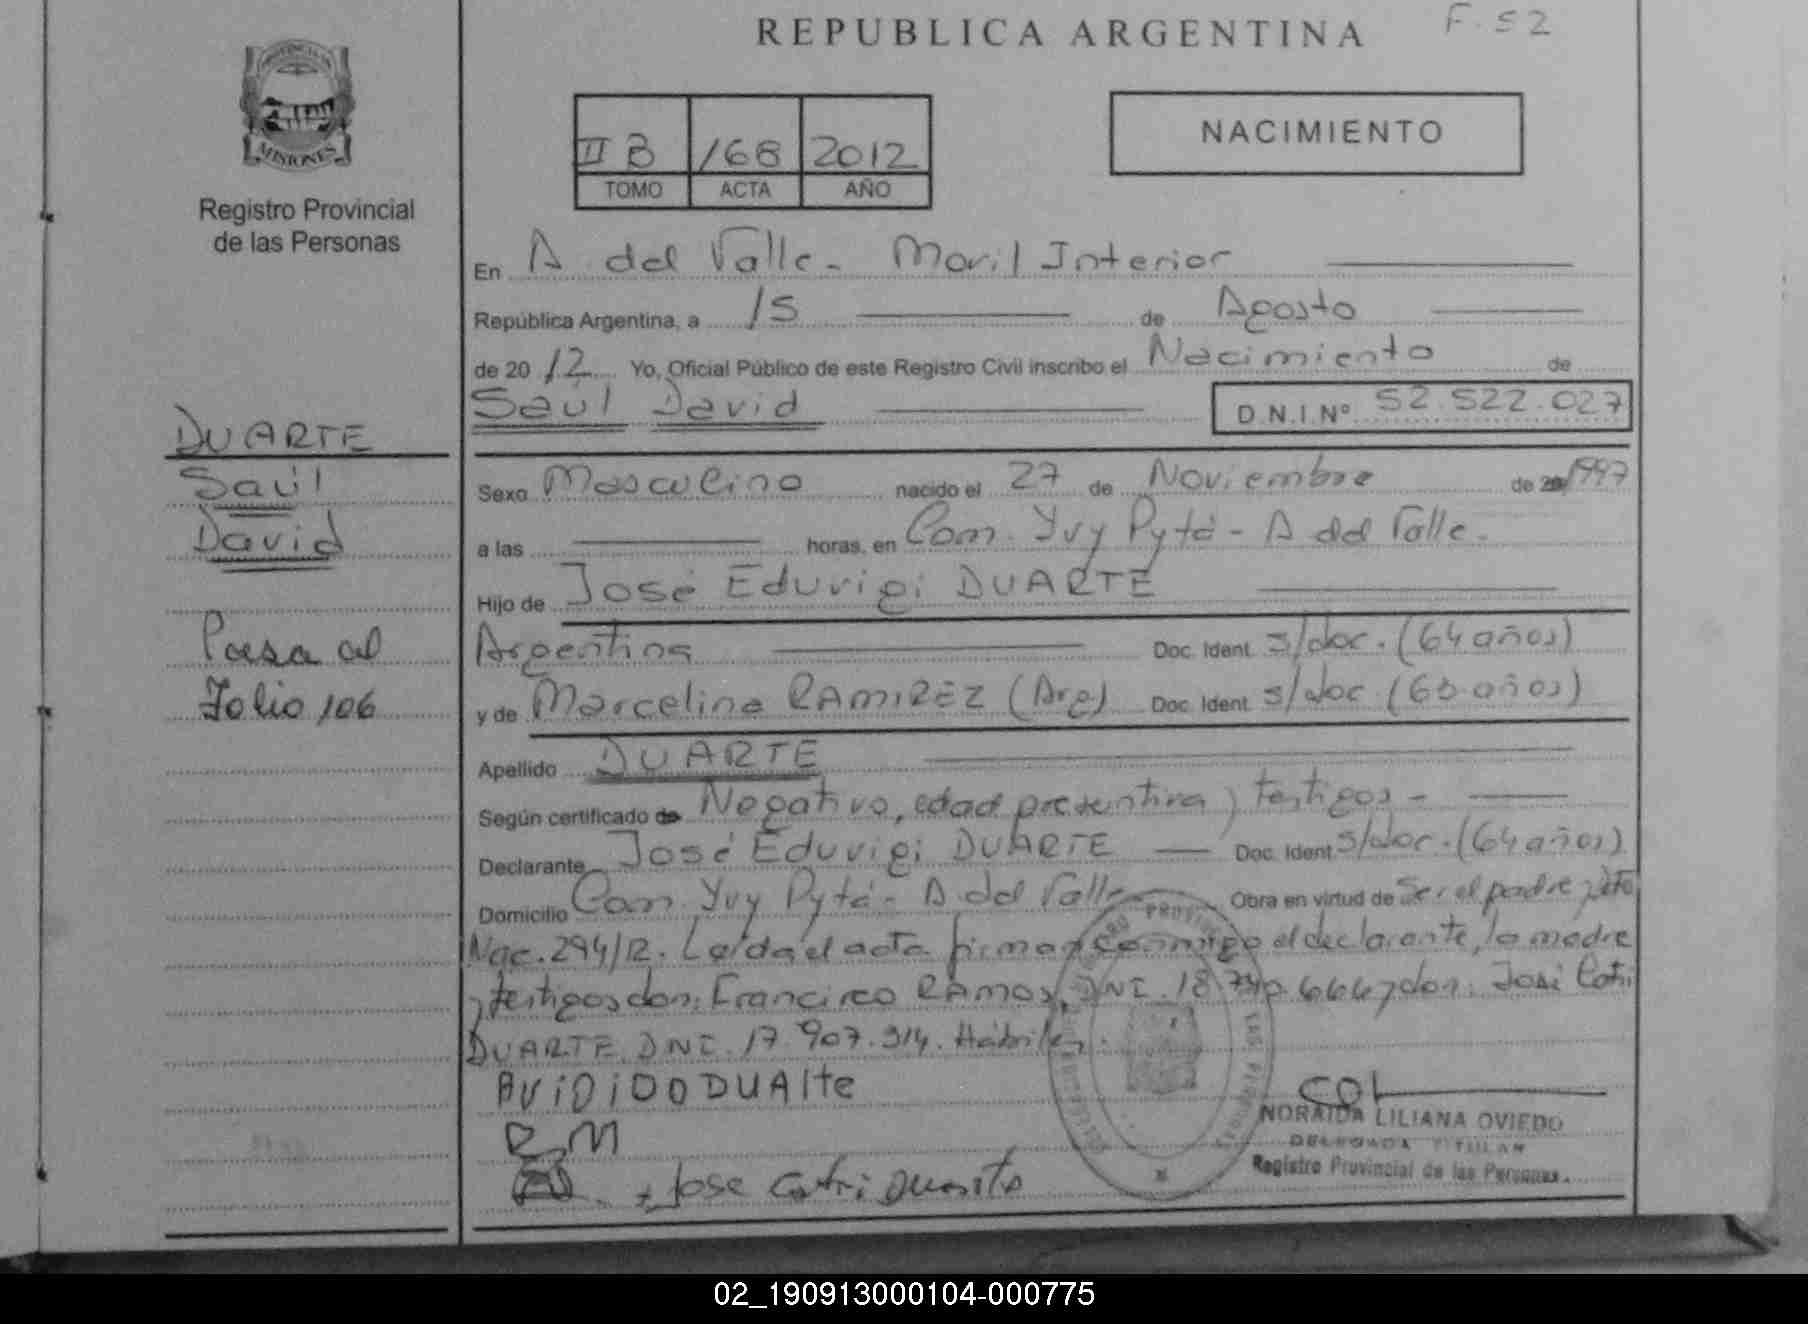 REPUBLICA ARGENTINA
F. 52
MISIONES
Registro Provincial
de las Personas
II B 168 2012
TOMO ACTA AÑO
NACIMIENTO
En A del Valle - Movil Interior
República Argentina, a 15 de Agosto
de 2012 Yo, Oficial Público de este Registro Civil inscribo el Nacimiento de
Saúl David D.N.I.Nº 52.522.027
DUARTE
Saúl
David
Pasa al
Folio 106
Sexo Masculino nacido el 27 de Noviembre de 20 1997
a las horas, en Com. Yvy Pytá - A del Valle.
Hijo de José Eduvigi DUARTE
Argentina Doc. Ident. s/doc. (64 años)
y de Marcelina RAMIREZ (Arg) Doc. Ident. s/doc. (60 años)
Apellido DUARTE
Según certificado de Negativo, edad presuntiva y testigos -
Declarante José Eduvigi DUARTE Doc. Ident. s/doc. (64 años)
Domicilio Com. Yvy Pytá - A del Valle Obra en virtud de Ser el padre y Dto
Nac. 294/12. Leída el acta firman conmigo el declarante, la madre
y testigos don: Francisco RAMOS, DNI. 18.740.666 y don: José Catri
DUARTE. DNI. 17.907.914. Hábiles.
AViDiOODUAlte
R.M
Jose Catri Duarte
NORAIDA LILIANA OVIEDO
DELEGADA TITULAR
Registro Provincial de las Personas.
02_190913000104-000775